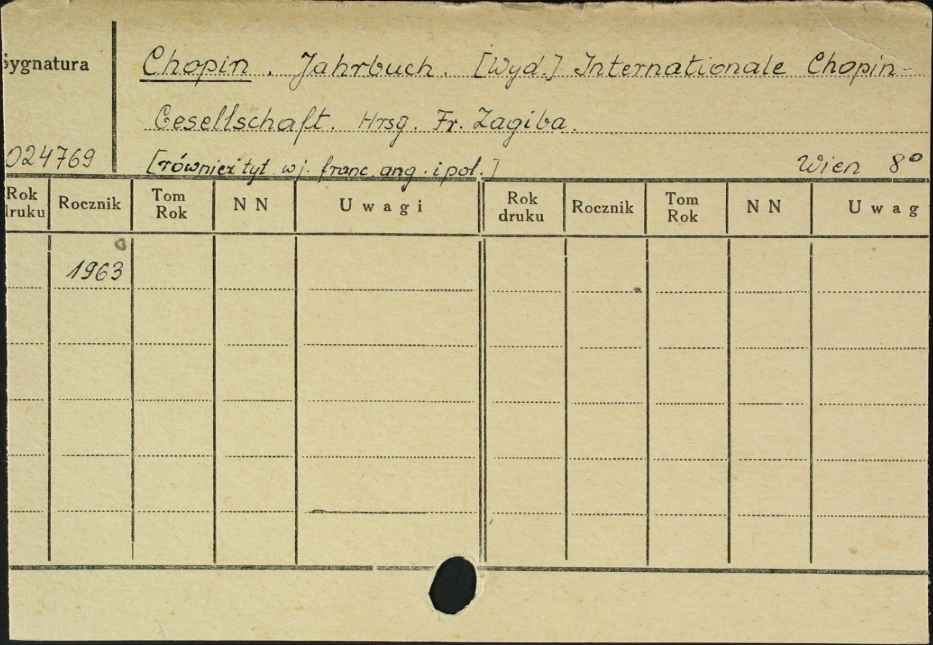 Sygnatura
Chopin. Jahrbuch. [Wyd.] Internationale Chopin-
Gesellschaft. Hrsg. Fr. Zagiba.
024769
[również tyt. w j. franc. ang. i pol.] Wien 8°
Rok druku Rocznik Tom Rok NN Uwagi Rok druku Rocznik Tom Rok NN Uwag
1963